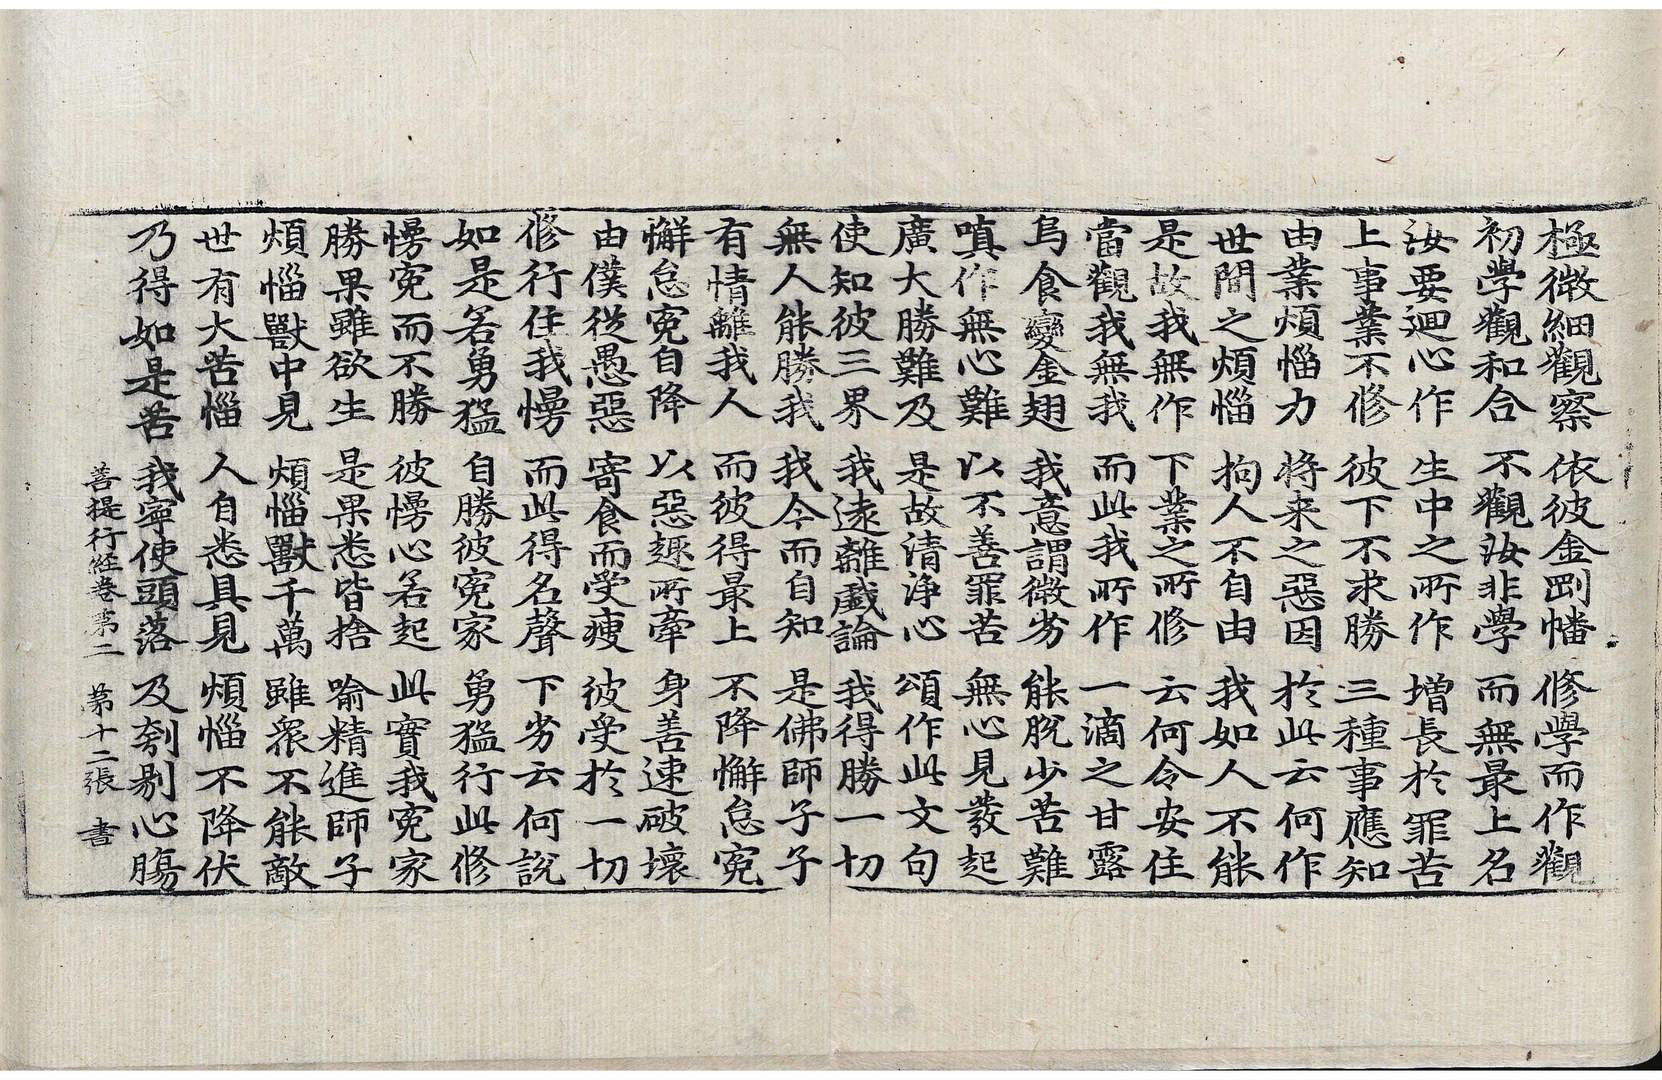 極微細觀察　依彼金剛幡　修學而作觀
初學觀和合　不觀汝非學　而無最上名
汝要迴心作　生中之所作　增長於罪苦
上事業不修　彼下不求勝　三種事應知
由業煩惱力　將来之惡因　於此云何作
世間之煩惱　拘人不自由　我如人不能
是故我無作　下業之所修　云何令安住
當觀我無我　而此我所作　一滴之甘露
烏食變金翅　我意謂微劣　能脫少苦難
嗔作無心難　以不善罪苦　無心見發起
廣大勝難及　是故清淨心　頌作此文句
使知彼三界　我遠離戲論　我得勝一切
無人能勝我　我今而自知　是佛師子子
有情離我人　而彼得最上　不降懈怠冤
懈怠冤自降　以惡趣所牽　身善速破壞
由僕從愚惡　寄食而受瘦　彼受於一切
修行住我慢　而此得名聲　下劣云何說
如是若勇猛　自勝彼冤家　勇猛行此修
慢冤而不勝　彼慢心若起　此實我冤家
勝果雖欲生　是果悉皆捨　喻精進師子
煩惱獸中見　煩惱獸千萬　雖衆不能敵
世有大苦惱　人自悉具見　煩惱不降伏
乃得如是苦　我寧使頭落　及刳剔心膓
菩提行经卷第二　第十二張　書